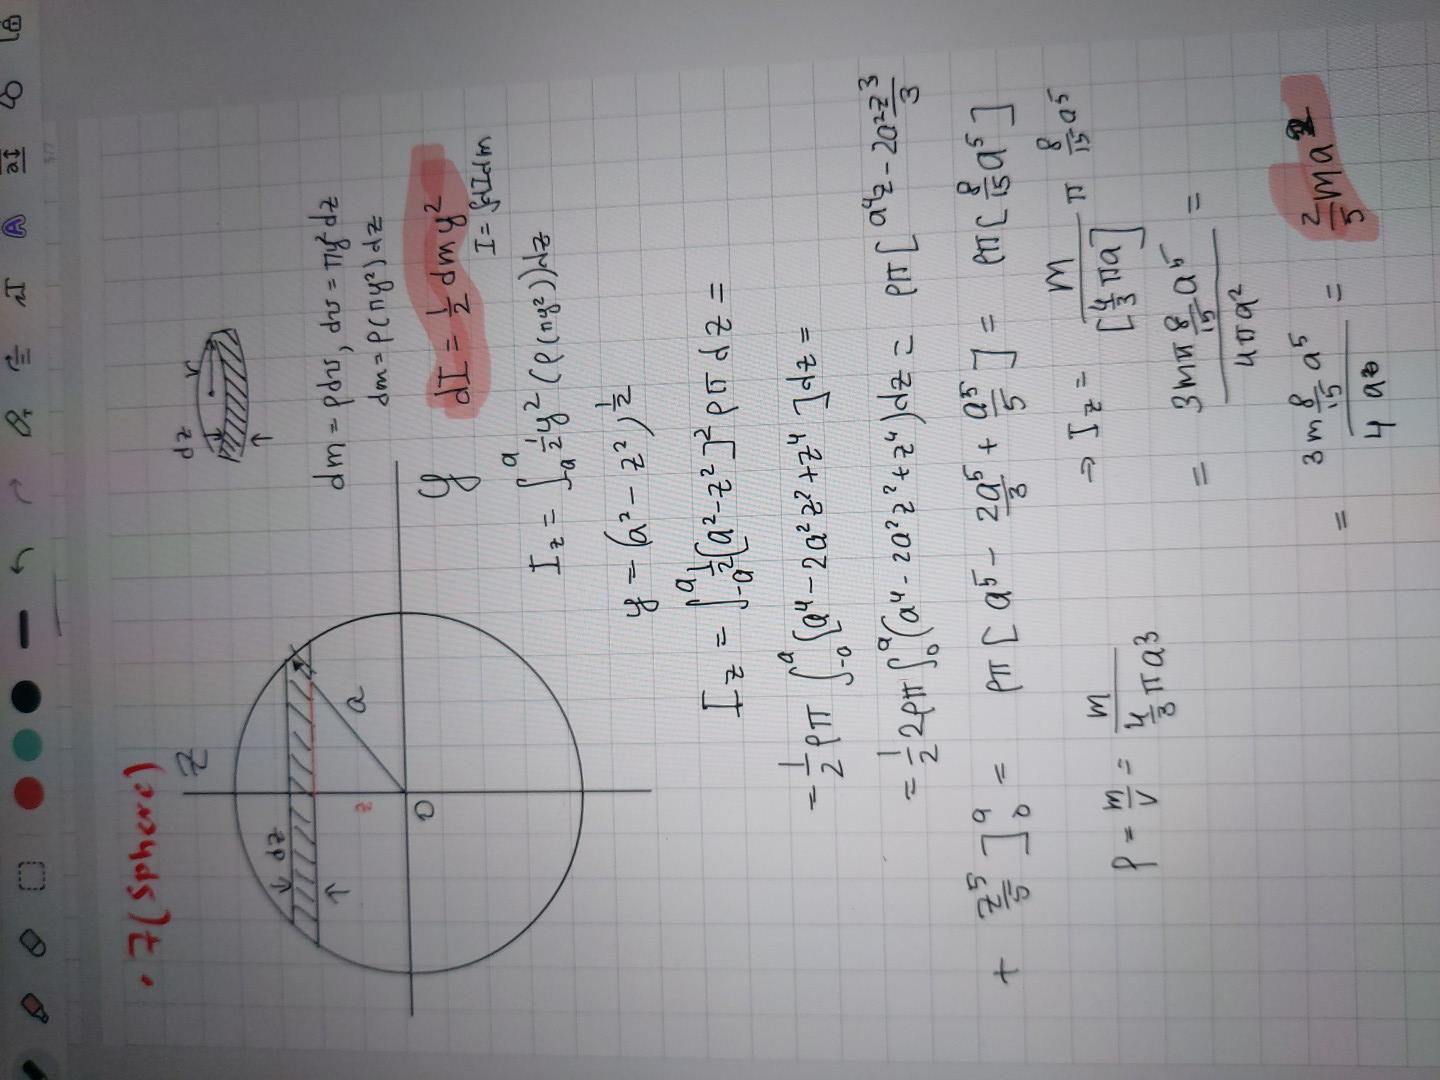 • 7 (Sphere)
Z
dz
z
a
O
y
dz
r
dm = ρdv, dv = πy²dz
dm = ρ(πy²)dz
dI = 1/2 dm y²
I = ∫dIdm
I_z = ∫_a^a 1/2 y² (ρ(πy²))dz
y = (a² - z²)^1/2
I_z = ∫_-a^a 1/2 [a² - z²]² ρπ dz =
= 1/2 ρπ ∫_-a^a [a⁴ - 2a²z² + z⁴] dz =
= 1/2 2ρπ ∫_0^a (a⁴ - 2a²z² + z⁴)dz = ρπ [a⁴z - 2a² z³/3
+ z⁵/5]_0^a = ρπ [a⁵ - 2a⁵/3 + a⁵/5] = ρπ [8/15 a⁵]
ρ = m/v = m / 4/3 πa3 → I_z = m / [4/3 πa] π 8/15 a⁵
= 3mπ 8/15 a⁵ / 4πa² =
= 3m 8/15 a⁵ / 4 = 2/5 ma²